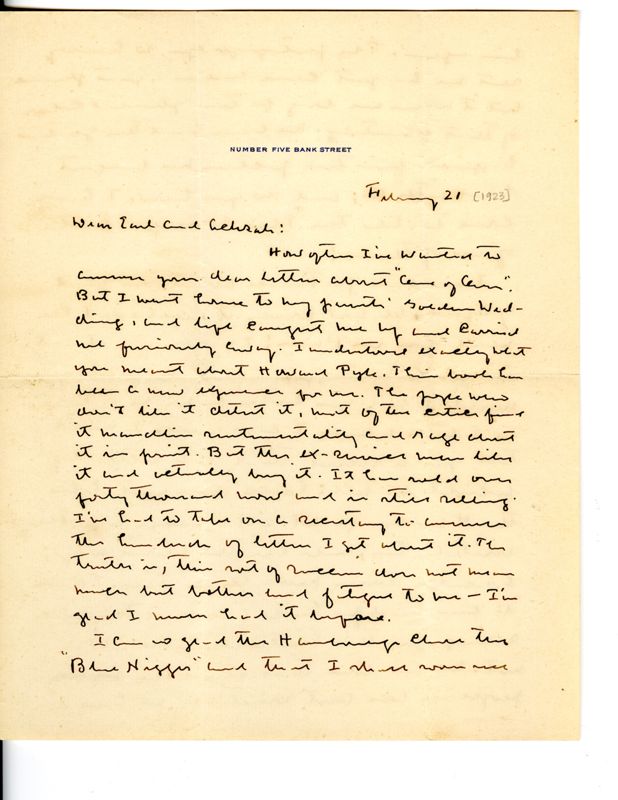 NUMBER FIVE BANK STREET
February 21 [1923]
Dear Earl and Achsah:
How often I've wanted to
answer your dear letters about "One of Ours".
But I went home to my parents' Golden Wed-
ding, and life caught me up and carried
me furiously away. I understand exactly what
you meant about Howard Pyle. This book has
been a new experience for me. The people who
don't like it detest it, most of the critics find
it maudlin sentimentality and rage about
it in print. But the ex-service men like
it and actually buy it. It has sold over
forty thousand now and is still selling.
I've had to take on a secretary to answer
the hundreds of letters I get about it. The
truth is, this sort of success does not mean
much but bother and fatigue to me — I'm
glad I never had it before.
I am so glad the Hambourgs chose the
"Blue Nigger" and that I shall